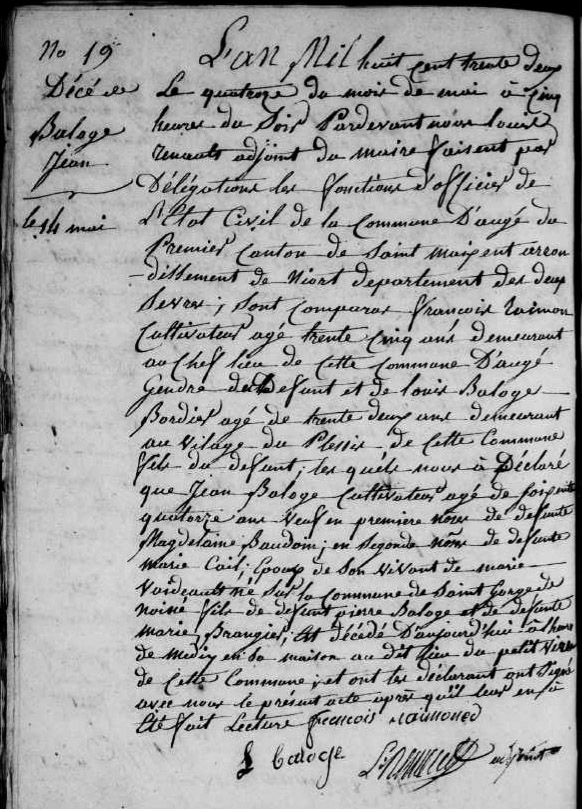 No 19
Décé de
Baloge
Jean
le 14 mai
L'an Mil huit cent trente deux
Le quatorze du mois de mai à Cinq
heures du Soir Pardevant nous Louis
renault adjoint du maire faisent par
Délégations les fonctions d'officier de
L'Etat Civil de la Commune D'augé du
Premier Canton de Saint maixent arron
-dissement de Niort departement des deux
Sevres; sont Comparus francois Raimon
Cultivateur agé trente Cinq ans demeurant
au Chef lieu de Cette Commune D'augé
Gendre du Defunt et de Louis Baloge
Bordier agé de trente deux ans demeurant
au vilage du Plessis de Cette Commune
fils du defunt; les quéls nous à Déclaré
que Jean Baloge Cultivateur agé de soixente
quatorze ans veuf en première nôces de defunte
Magdelaine Baudoin; en Segonde nôces de defunte
marie Cail; Epoux de Son vivant de marie
Vardeault né Sur la Commune de Saint Gorge de
noiné fils de defunt pierre Baloge et de defunte
marie Brangier; Est décédé D'aujourd'hui à l'heure
de midi en Sa maison au dit lieu du petit
de Cette Commune; et ont les déclarant ont Signé
avec nous le présent acte après qu'il leur en a
Eté fait Lecture francois raimoned
L baloge
L. renault adjoint